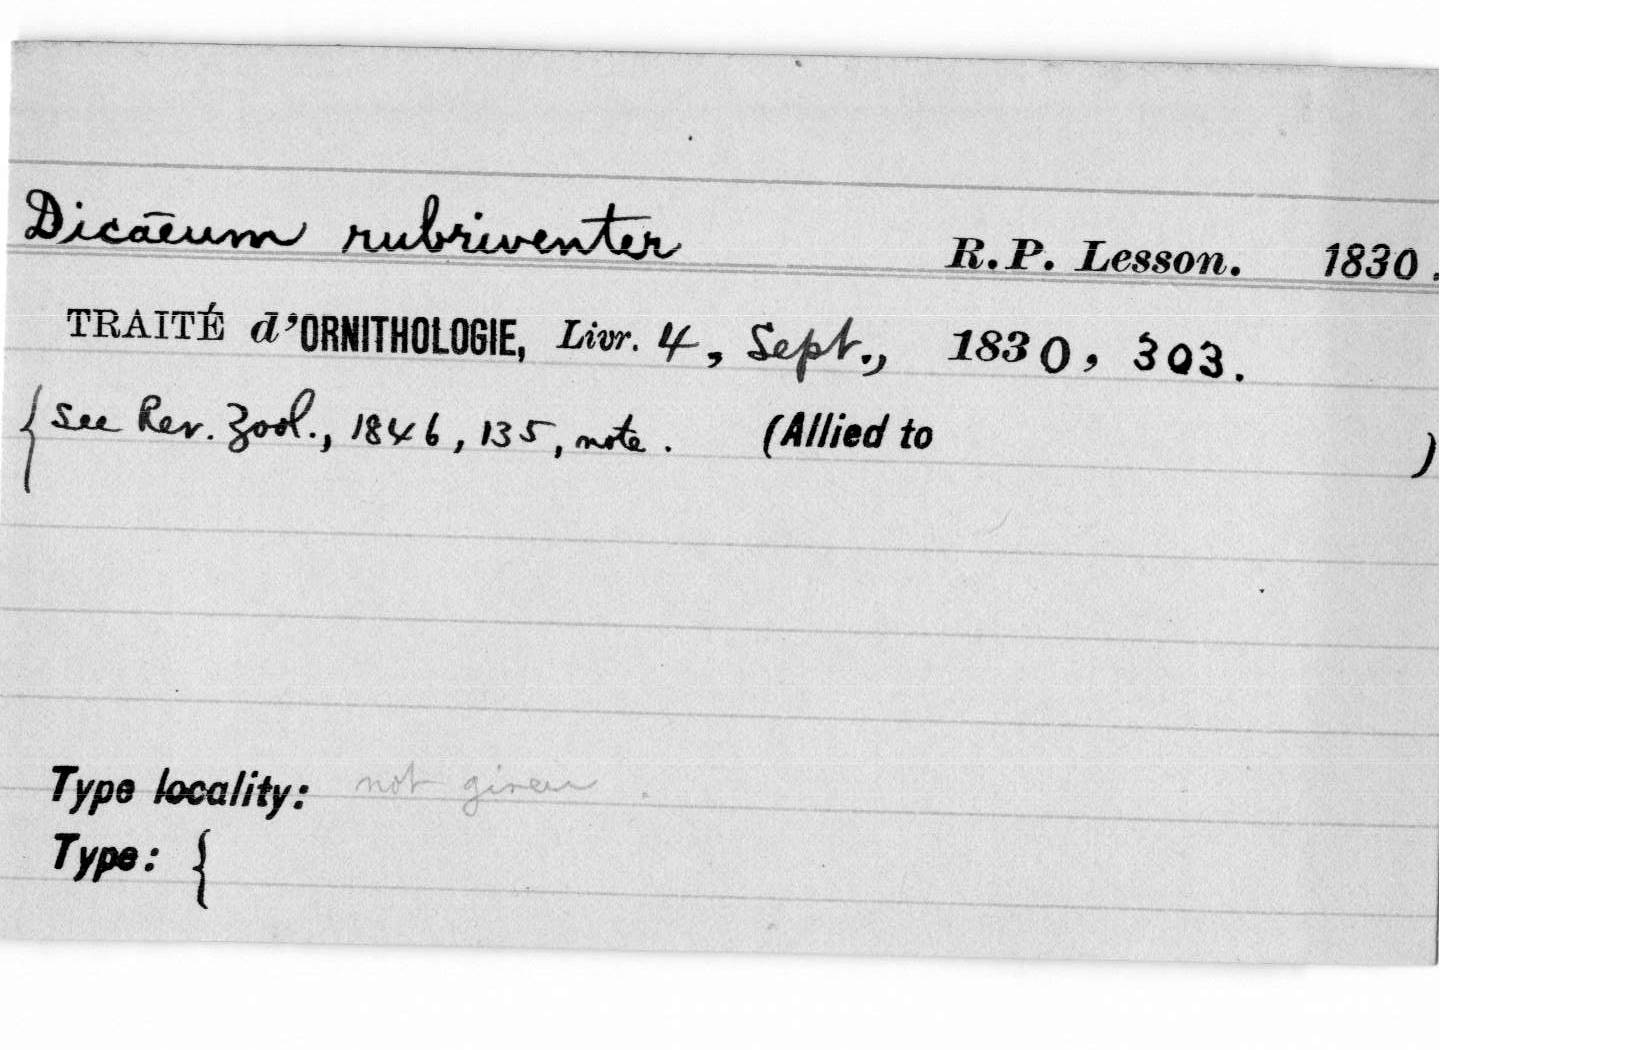 Dicaeum rubriventer R.P. Lesson. 1830.
TRAITÉ d'ORNITHOLOGIE, Livr. 4, Sept., 1830, 303.
{ See Rev. Zool., 1846, 135, note. (Allied to )
Type locality: not given.
Type: {